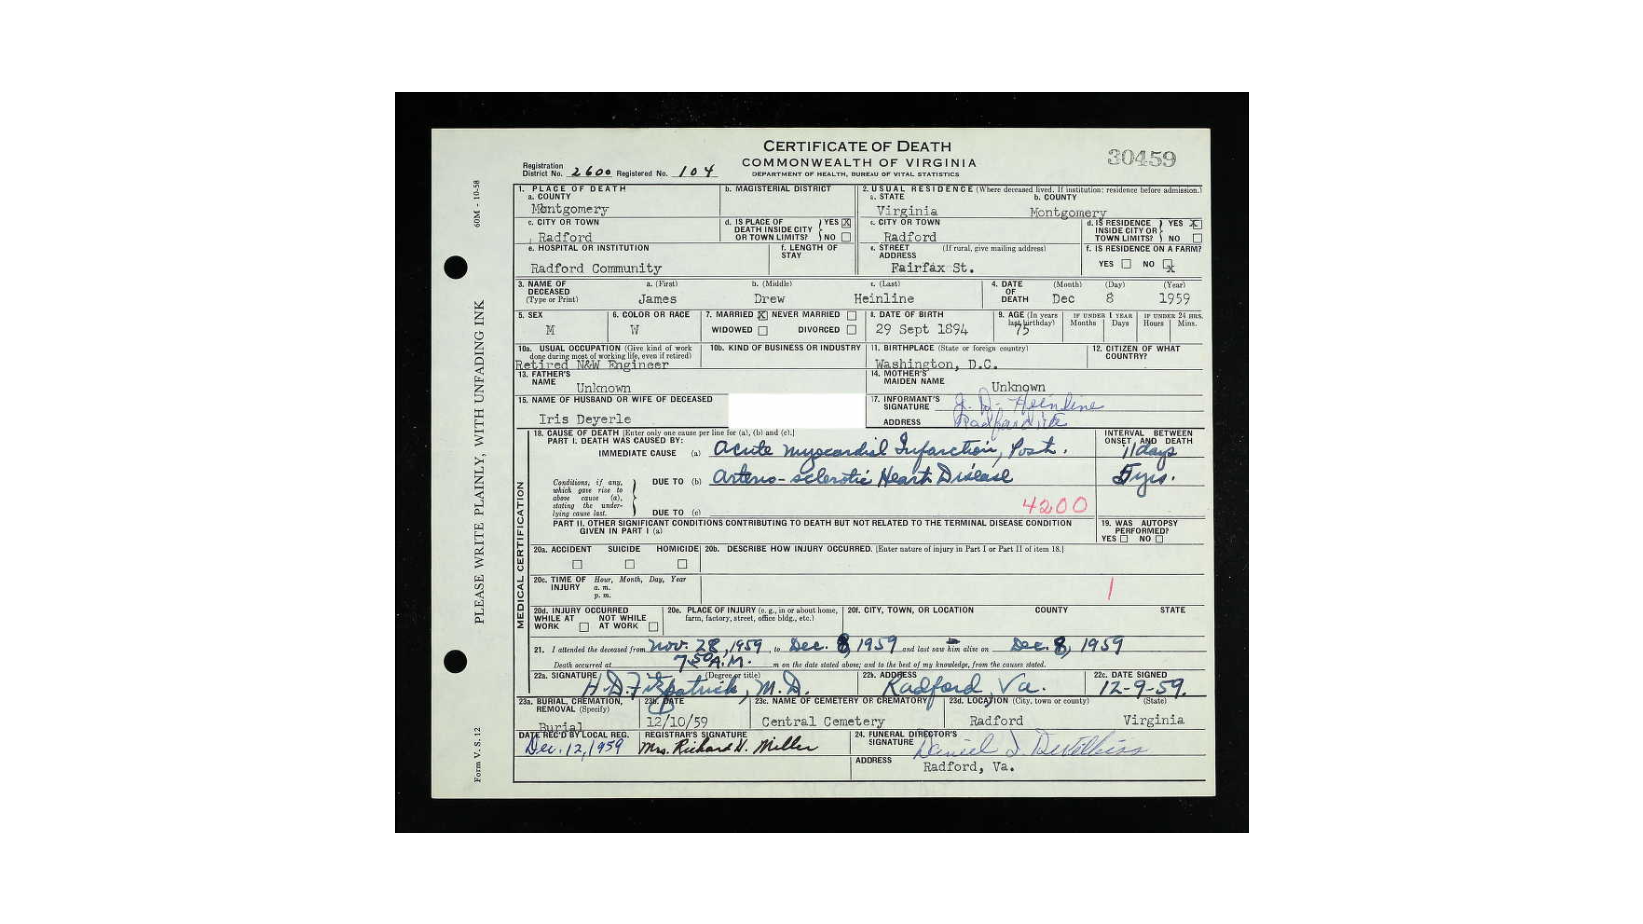 CERTIFICATE OF DEATH
COMMONWEALTH OF VIRGINIA
DEPARTMENT OF HEALTH, BUREAU OF VITAL STATISTICS
30459
Registration District No. 2600 Registered No. 104
60M - 10-58
PLEASE WRITE PLAINLY, WITH UNFADING INK
Form V. S. 12
1. PLACE OF DEATH
a. COUNTY
Montgomery
b. MAGISTERIAL DISTRICT
2. USUAL RESIDENCE (Where deceased lived. If institution: residence before admission.)
a. STATE
Virginia
b. COUNTY
Montgomery
c. CITY OR TOWN
Radford
d. IS PLACE OF DEATH INSIDE CITY OR TOWN LIMITS? YES X NO
c. CITY OR TOWN
Radford
d. IS RESIDENCE INSIDE CITY OR TOWN LIMITS? YES X NO
e. HOSPITAL OR INSTITUTION
Radford Community
f. LENGTH OF STAY
e. STREET ADDRESS (If rural, give mailing address)
Fairfax St.
f. IS RESIDENCE ON A FARM?
YES NO X
3. NAME OF DECEASED (Type or Print)
a. (First) b. (Middle) c. (Last)
James Drew Heinline
4. DATE OF DEATH (Month) (Day) (Year)
Dec 8 1959
5. SEX
M
6. COLOR OR RACE
W
7. MARRIED X NEVER MARRIED
WIDOWED DIVORCED
8. DATE OF BIRTH
29 Sept 1894
9. AGE (In years last birthday)
75
IF UNDER 1 YEAR
Months Days
IF UNDER 24 HRS.
Hours Mins.
10a. USUAL OCCUPATION (Give kind of work done during most of working life, even if retired)
Retired N&W Engineer
10b. KIND OF BUSINESS OR INDUSTRY
11. BIRTHPLACE (State or foreign country)
Washington, D.C.
12. CITIZEN OF WHAT COUNTRY?
13. FATHER'S NAME
Unknown
14. MOTHER'S MAIDEN NAME
Unknown
15. NAME OF HUSBAND OR WIFE OF DECEASED
Iris Deyerle
17. INFORMANT'S SIGNATURE J. D. Heinline
ADDRESS Radford
MEDICAL CERTIFICATION
18. CAUSE OF DEATH [Enter only one cause per line for (a), (b) and (c).]
PART I. DEATH WAS CAUSED BY:
IMMEDIATE CAUSE (a) Acute myocardial Infarction, Post.
INTERVAL BETWEEN ONSET AND DEATH
11 days
Conditions, if any, which gave rise to above cause (a), stating the underlying cause last.
DUE TO (b) Arterio-sclerotic Heart Disease
5 yrs.
DUE TO (c)
4200
PART II. OTHER SIGNIFICANT CONDITIONS CONTRIBUTING TO DEATH BUT NOT RELATED TO THE TERMINAL DISEASE CONDITION GIVEN IN PART I (a)
19. WAS AUTOPSY PERFORMED?
YES NO
20a. ACCIDENT SUICIDE HOMICIDE
20b. DESCRIBE HOW INJURY OCCURRED. [Enter nature of injury in Part I or Part II of item 18.]
20c. TIME OF INJURY Hour, Month, Day, Year
a. m.
p. m.
1
20d. INJURY OCCURRED
WHILE AT WORK NOT WHILE AT WORK
20e. PLACE OF INJURY (e. g., in or about home, farm, factory, street, office bldg., etc.)
20f. CITY, TOWN, OR LOCATION COUNTY STATE
21. I attended the deceased from Nov. 28, 1959 to Dec. 8, 1959 and last saw him alive on Dec. 8, 1959
Death occurred at 7:50 A.M. m on the date stated above; and to the best of my knowledge, from the causes stated.
22a. SIGNATURE (Degree or title)
H. D. Fitzpatrick, M.D.
22b. ADDRESS
Radford, Va.
22c. DATE SIGNED
12-9-59.
23a. BURIAL, CREMATION, REMOVAL (Specify)
Burial
23b. DATE
12/10/59
23c. NAME OF CEMETERY OR CREMATORY
Central Cemetery
23d. LOCATION (City, town or county) (State)
Radford Virginia
DATE REC'D BY LOCAL REG.
Dec. 12, 1959
REGISTRAR'S SIGNATURE
Mrs. Richard H. Miller
24. FUNERAL DIRECTOR'S SIGNATURE
Daniel J. DeVilbiss
ADDRESS
Radford, Va.